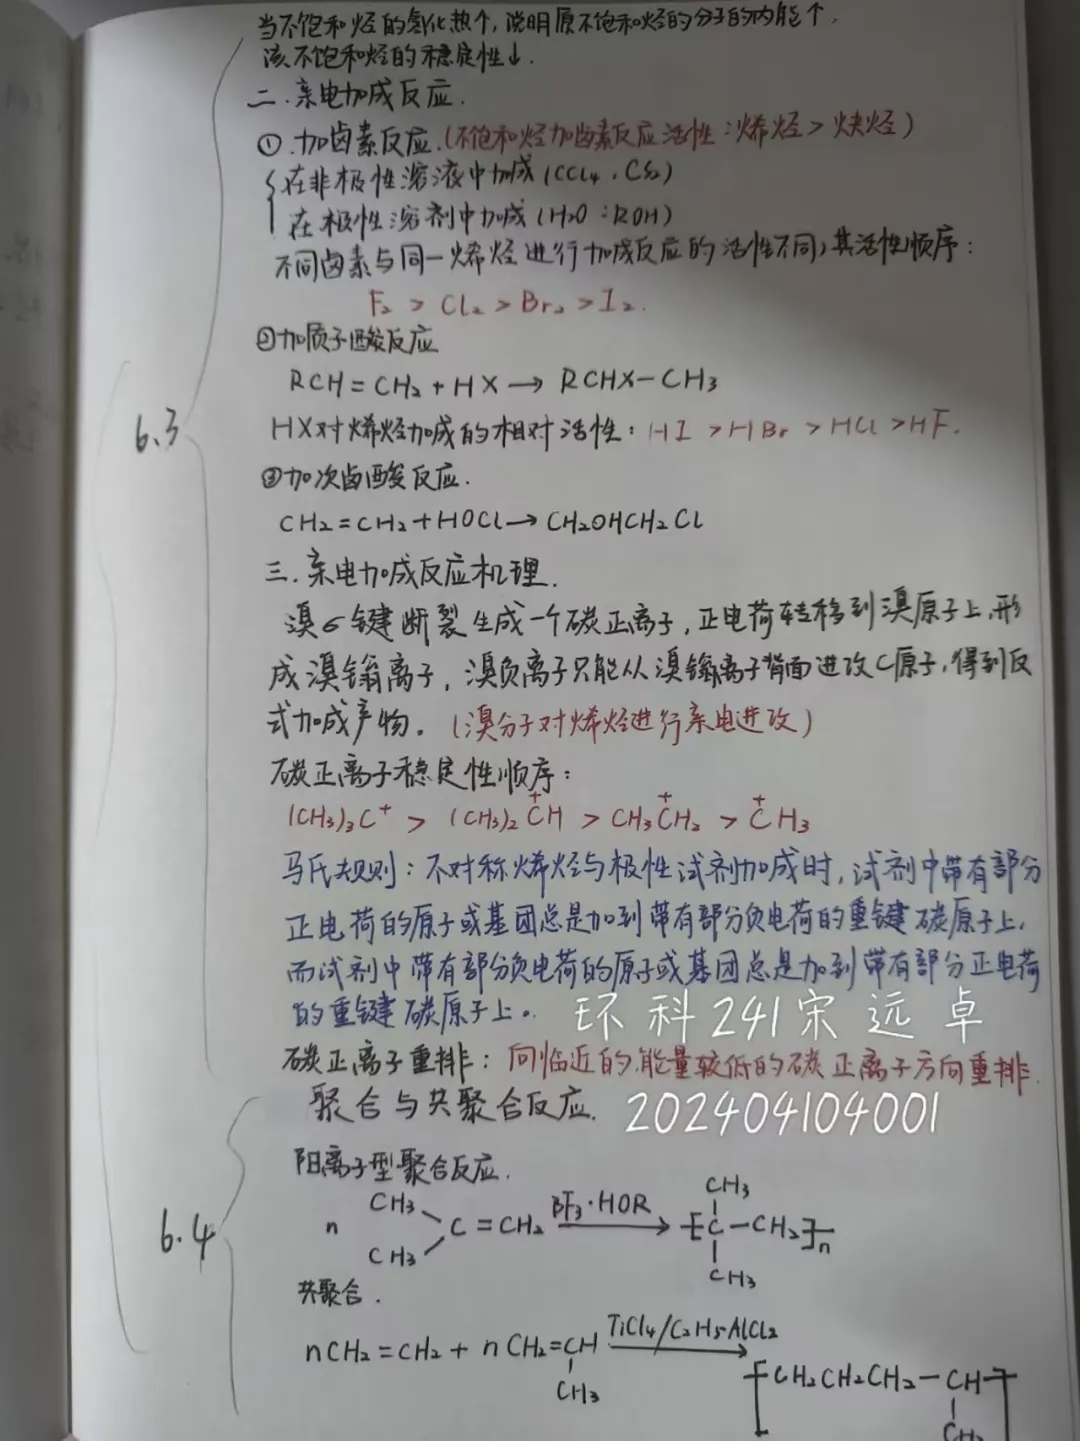 当不饱和烃的氢化热个,说明原不饱和烃的分子的内能个.
该不饱和烃的稳定性↓.
二.亲电加成反应.
①.加卤素反应.(不饱和烃加卤素反应活性:烯烃>炔烃)
在非极性溶液中加成(CCl4,CS2)
在极性溶剂中加成(H2O:ROH)
不同卤素与同一烯烃进行加成反应的活性不同,其活性顺序:
F2 > Cl2 > Br2 > I2.
②加质子酸反应
RCH=CH2+HX→RCHX-CH3
HX对烯烃加成的相对活性:HI>HBr>HCl>HF.
③加次卤酸反应.
CH2=CH2+HOCl→CH2OHCH2Cl
三.亲电加成反应机理.
溴σ键断裂生成一个碳正离子,正电荷转移到溴原子上,形
成溴鎓离子,溴负离子只能从溴鎓离子背面进攻C原子,得到反
式加成产物。(溴分子对烯烃进行亲电进攻)
碳正离子稳定性顺序:
(CH3)3C+ > (CH3)2C+H > CH3C+H2 > C+H3
马氏规则:不对称烯烃与极性试剂加成时,试剂中带有部分
正电荷的原子或基团总是加到带有部分负电荷的重键碳原子上,
而试剂中带有部分负电荷的原子或基团总是加到带有部分正电荷
的重键碳原子上。 环科241宋远卓
碳正离子重排:向临近的能量较低的碳正离子方向重排.
6.3
聚合与共聚合反应. 202404104001
阳离子型聚合反应.
CH3
CH3
n C=CH2 BF3·HOR → [C-CH2]n
CH3
CH3
6.4
共聚合.
nCH2=CH2+nCH2=CH TiCl4/C2H5AlCl2 →
CH3
[CH2CH2CH2-CH]
CH3